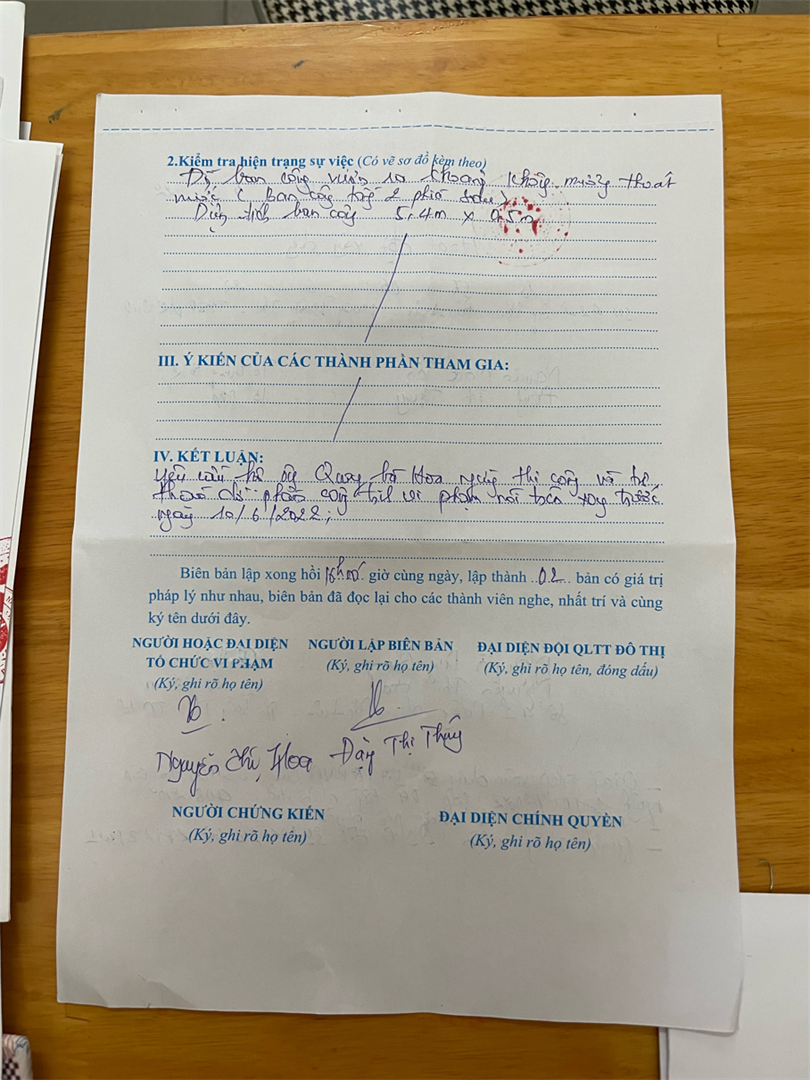 2.Kiểm tra hiện trạng sự việc (Có vẽ sơ đồ kèm theo)
Đổ ban công vươn ra khoảng không mương thoát
nước ( Ban công tầng 2 phía sau)
Diện tích ban công 5,4m x 0,5m
III. Ý KIẾN CỦA CÁC THÀNH PHẦN THAM GIA:
IV. KẾT LUẬN:
Yêu cầu hộ ông Quang bà Hoa ngừng thi công và
tháo dỡ phần công trình vi phạm nói trên xong trước
ngày 10/6/2022;
Biên bản lập xong hồi 16h00 giờ cùng ngày, lập thành 02 bản có giá trị
pháp lý như nhau, biên bản đã đọc lại cho các thành viên nghe, nhất trí và cùng
ký tên dưới đây.
NGƯỜI HOẶC ĐẠI DIỆN NGƯỜI LẬP BIÊN BẢN ĐẠI DIỆN ĐỘI QLTT ĐÔ THỊ
TỔ CHỨC VI PHẠM (Ký, ghi rõ họ tên) (Ký, ghi rõ họ tên, đóng dấu)
(Ký, ghi rõ họ tên)
Nguyễn Thị Hoa Đặng Thị Thúy
NGƯỜI CHỨNG KIẾN ĐẠI DIỆN CHÍNH QUYỀN
(Ký, ghi rõ họ tên) (Ký, ghi rõ họ tên)